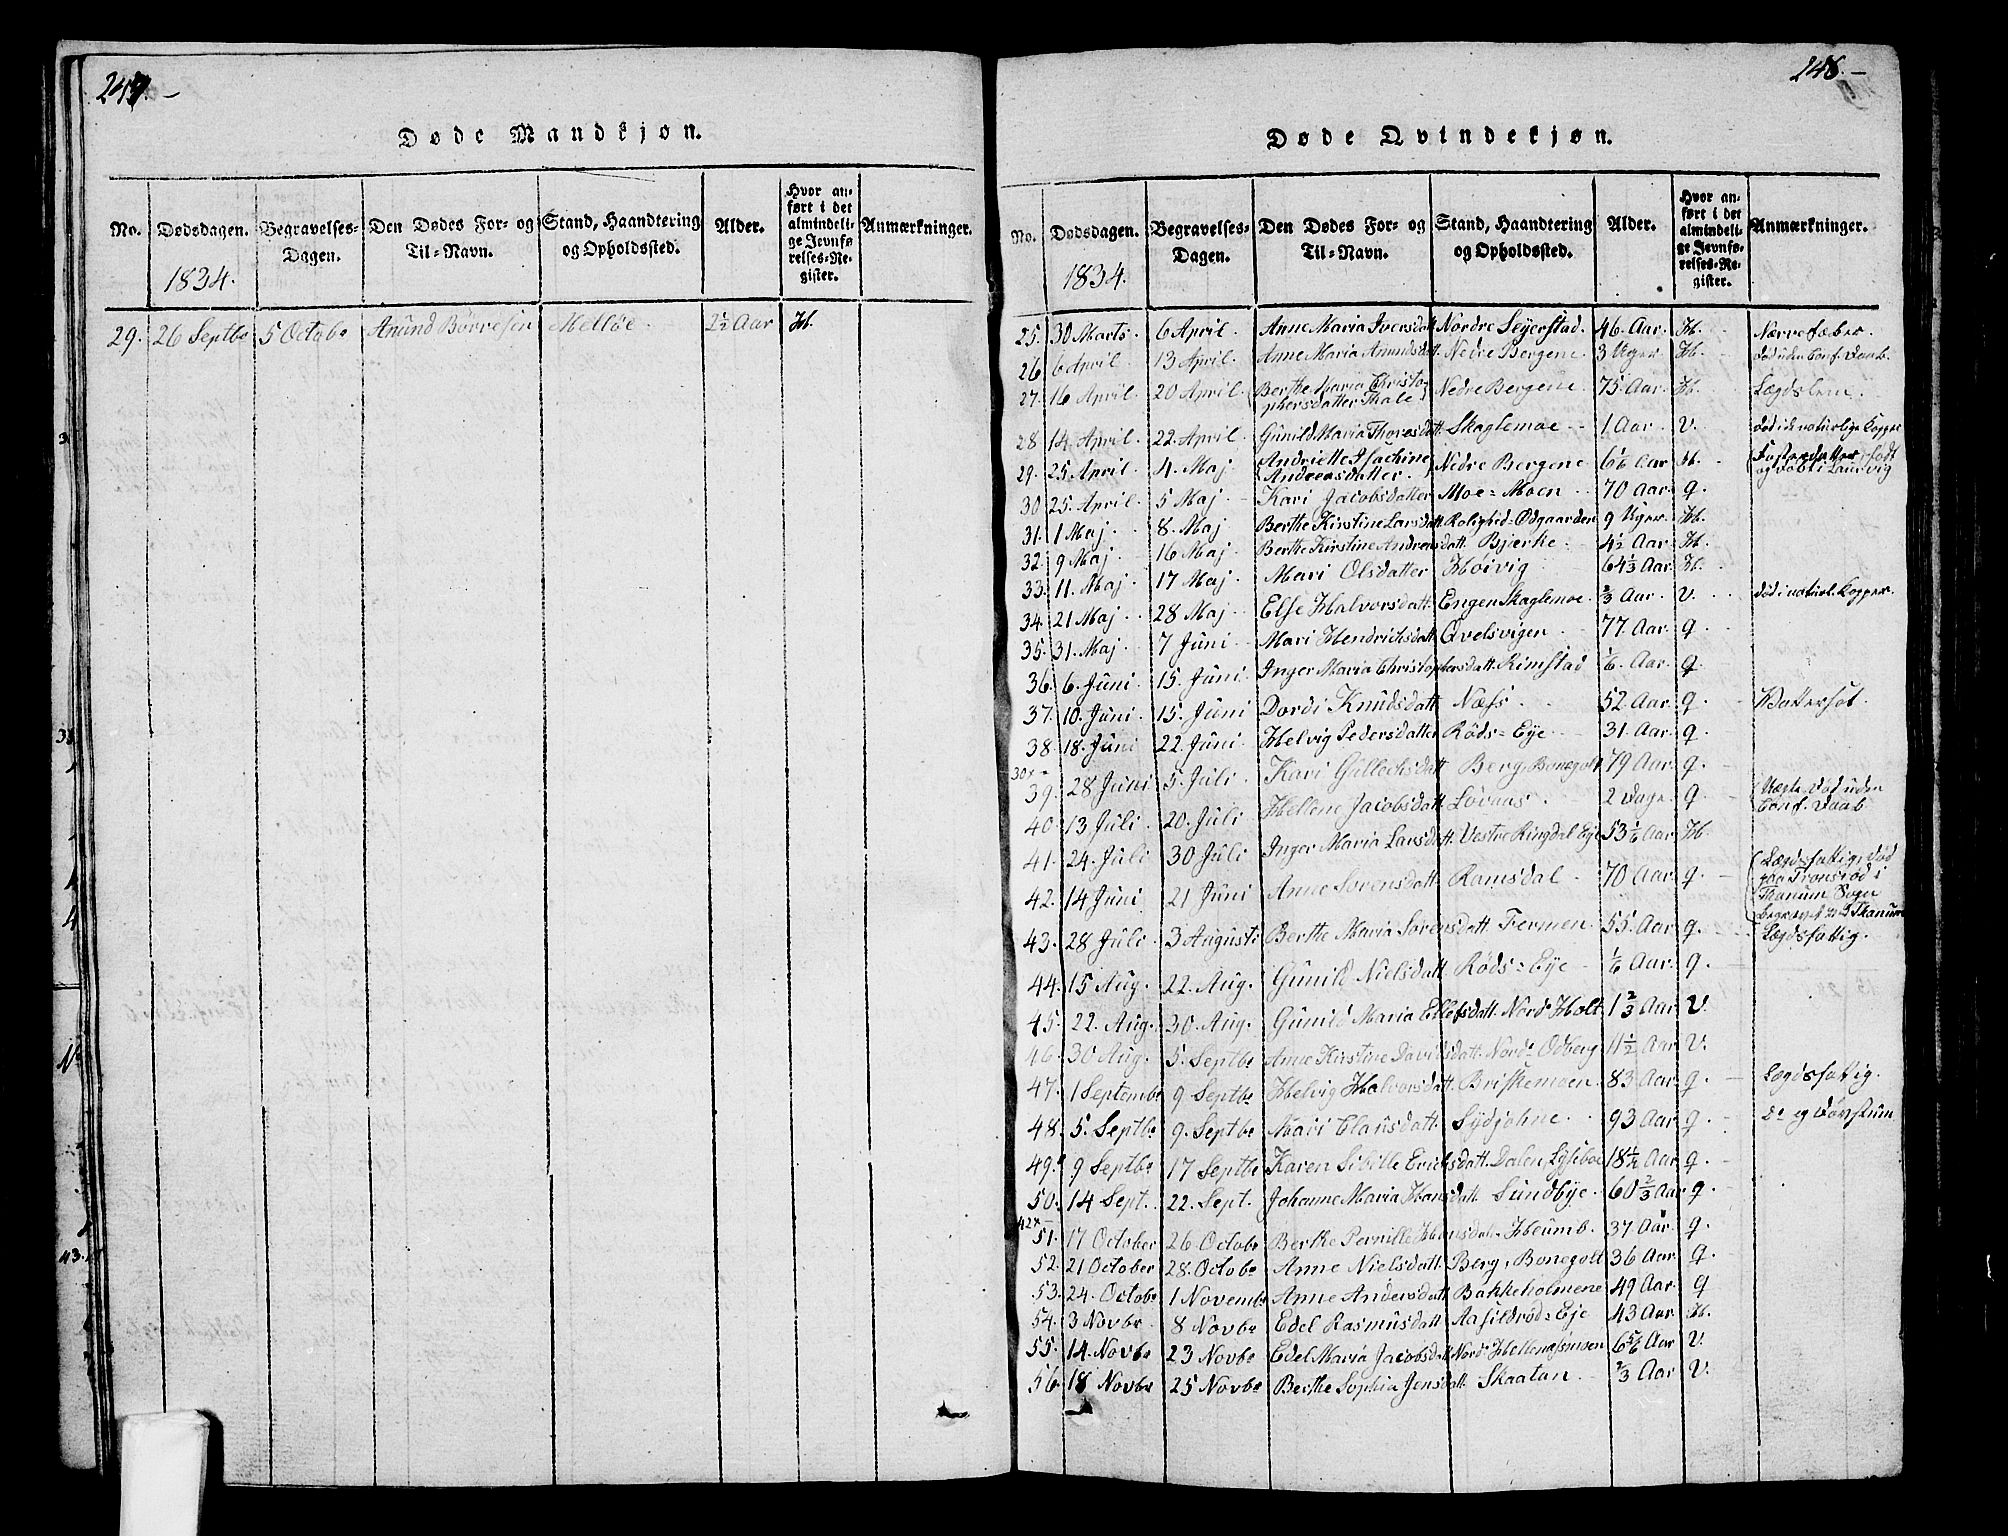 247. –
Døde Mandkjøn.
No. Dødsdagen. 1834. Begravelses-Dagen. Den Dødes For- og Til-Navn. Stand, Haandtering og Opholdssted. Alder. Hvor anført i det almindelige Jevnførelses-Register. Anmærkninger.
29. 26 Septbr 5 Octobr Anund Börresen Melløe. 2½ Aar H.
248. –
Døde Qvindekjøn.
No. Dødsdagen. 1834. Begravelses-Dagen. Den Dødes For- og Til-Navn. Stand, Haandtering og Opholdssted. Alder. Hvor anført i det almindelige Jevnførelses-Register. Anmærkninger.
25. 30 Marts. 6 April. Anne Maria Iversdatt. Nordre Seyerstad. 46 Aar. H. Nervefeber.
26 6 April 13 April. Anne Maria Anundsdatt. Nedre Bergene. 3 Uger. H. Död uden Conf. Daab.
27. 16 April. 20 April. Berthe Maria Christophersdatter Thale Nedre Bergene. 75 Aar. H. Lægdslem.
28 14 April. 22 April. Gunild Maria Thoresdatt. Skaglemoe 1 Aar. V. död i de naturlige Kopper
29. 25 April. 4. Maj Andriette Isachine Andreasdatter. Nedre Bergene. 6⅙ Aar H. Fosterdatter, född og döbt i Laurvig
30 25. April. 5 Maj Kari Jacobsdatter Moe=Moen 70 Aar. q.
31. 1 Maj 8. Maj Berthe Kirstine Larsdatt. Rolighed=Odgaarden 9 Uger. H.
32. 9 Maj 16 Maj. Berthe Kirstine Andreasdatt. Bjerke. 4½ Aar. H.
33. 11. Maj. 17 Maj. Mari Olsdatter Høivig 64⅓ Aar H.
34. 21 Maj. 28 Maj. Else Halvorsdatt. Engen Skaglemoe. ⅔ Aar. V. död i naturl. Kopper.
35. 31. Maj. 7 Juni Mari Hendrichsdatt. Qvelsvigen 77. Aar. q.
36. 6. Juni. 15. Juni. Inger Maria Christophersdatt. Rimstad ⅙. Aar. q.
37. 10. Juni. 15. Juni Dordi Knudsdatt. Næss. 52. Aar. q. Vattersot.
38. 18. Juni 22 Juni. Helvig Pedersdatter Röds=Eye. 31. Aar. q.
39. 28 Juni 5. Juli. Kari Gullechsdatt Berg, Bonegolt 79 Aar. q.
40. 13 Juli. 20. Juli Hellene Jacobsdatt. Løvaas. 2 Dage. q. Uægte død uden Conf. Daab
41. 24. Juli 30 Juli Inger Maria Larsdatt. Vestre Ringdal Eje 53⅙ Aar. H.
42. 14 Juni 21 Juni Anne Sorensdatt. Ramsdal. 70 Aar. q. Lægdsfattig, död paa Fronsröd i Thanum Sogn begravet v. Thanum
43. 28 Juli. 3 Augusti Berthe Maria Sorensdatt. Fermen. 55. Aar. q. Lægdsfattig.
44. 15 Aug. 22. Aug. Gunild Nielsdatt. Röds=Eye ⅙ Aar. q.
45. 22. Aug. 30. Aug. Gunild Maria Ellefsdatt. Nordr Holt. 1⅔ Aar. V.
46. 30 Aug. 5. Septbr Anne Kirstine Davidsdatt. Nordr Odberg 11½ Aar V.
47. 1 Septembr 9 Septbr Helvig Halvorsdatt. Briskemoen. 83 Aar. q. Lægdsfattig.
48. 5. Septbr 9. Septbr Mari Clausdatt. Sydjohne. 93 Aar. q. Do og Døvstum
49. 9 Septbr 17 Septbr Karen Sibille Erichsdatt. Dalen Lysiboe 18¼ Aar q.
50. 14 Sept. 22. Sept. Johanne Maria Hansdatt. Sundbye. 60⅔ Aar q.
51. 17 October 26 Octobr Berthe Pernille Hansdatt. Heumb. 37 Aar. q.
52. 21 October 28. Octobr Anne Nielsdatt. Berg, Bonegolt 36 Aar. q.
53. 24. Octobr 1 Novembr Anne Andersdatt. Bakkeholmene 49 Aar. q
54. 3 Novbr. 8 Novbr Edel Rasmusdatt. Aasildröd=Eje 43 Aar. H.
55. 14. Novbr 23 Novbr Edel Maria Jacobsdatt. Nordr 6⅚ Aar V.
56. 18 Novbr 25 Novbr Berthe Sophia Jensdatt. Skaatan. ⅔ Aar V.